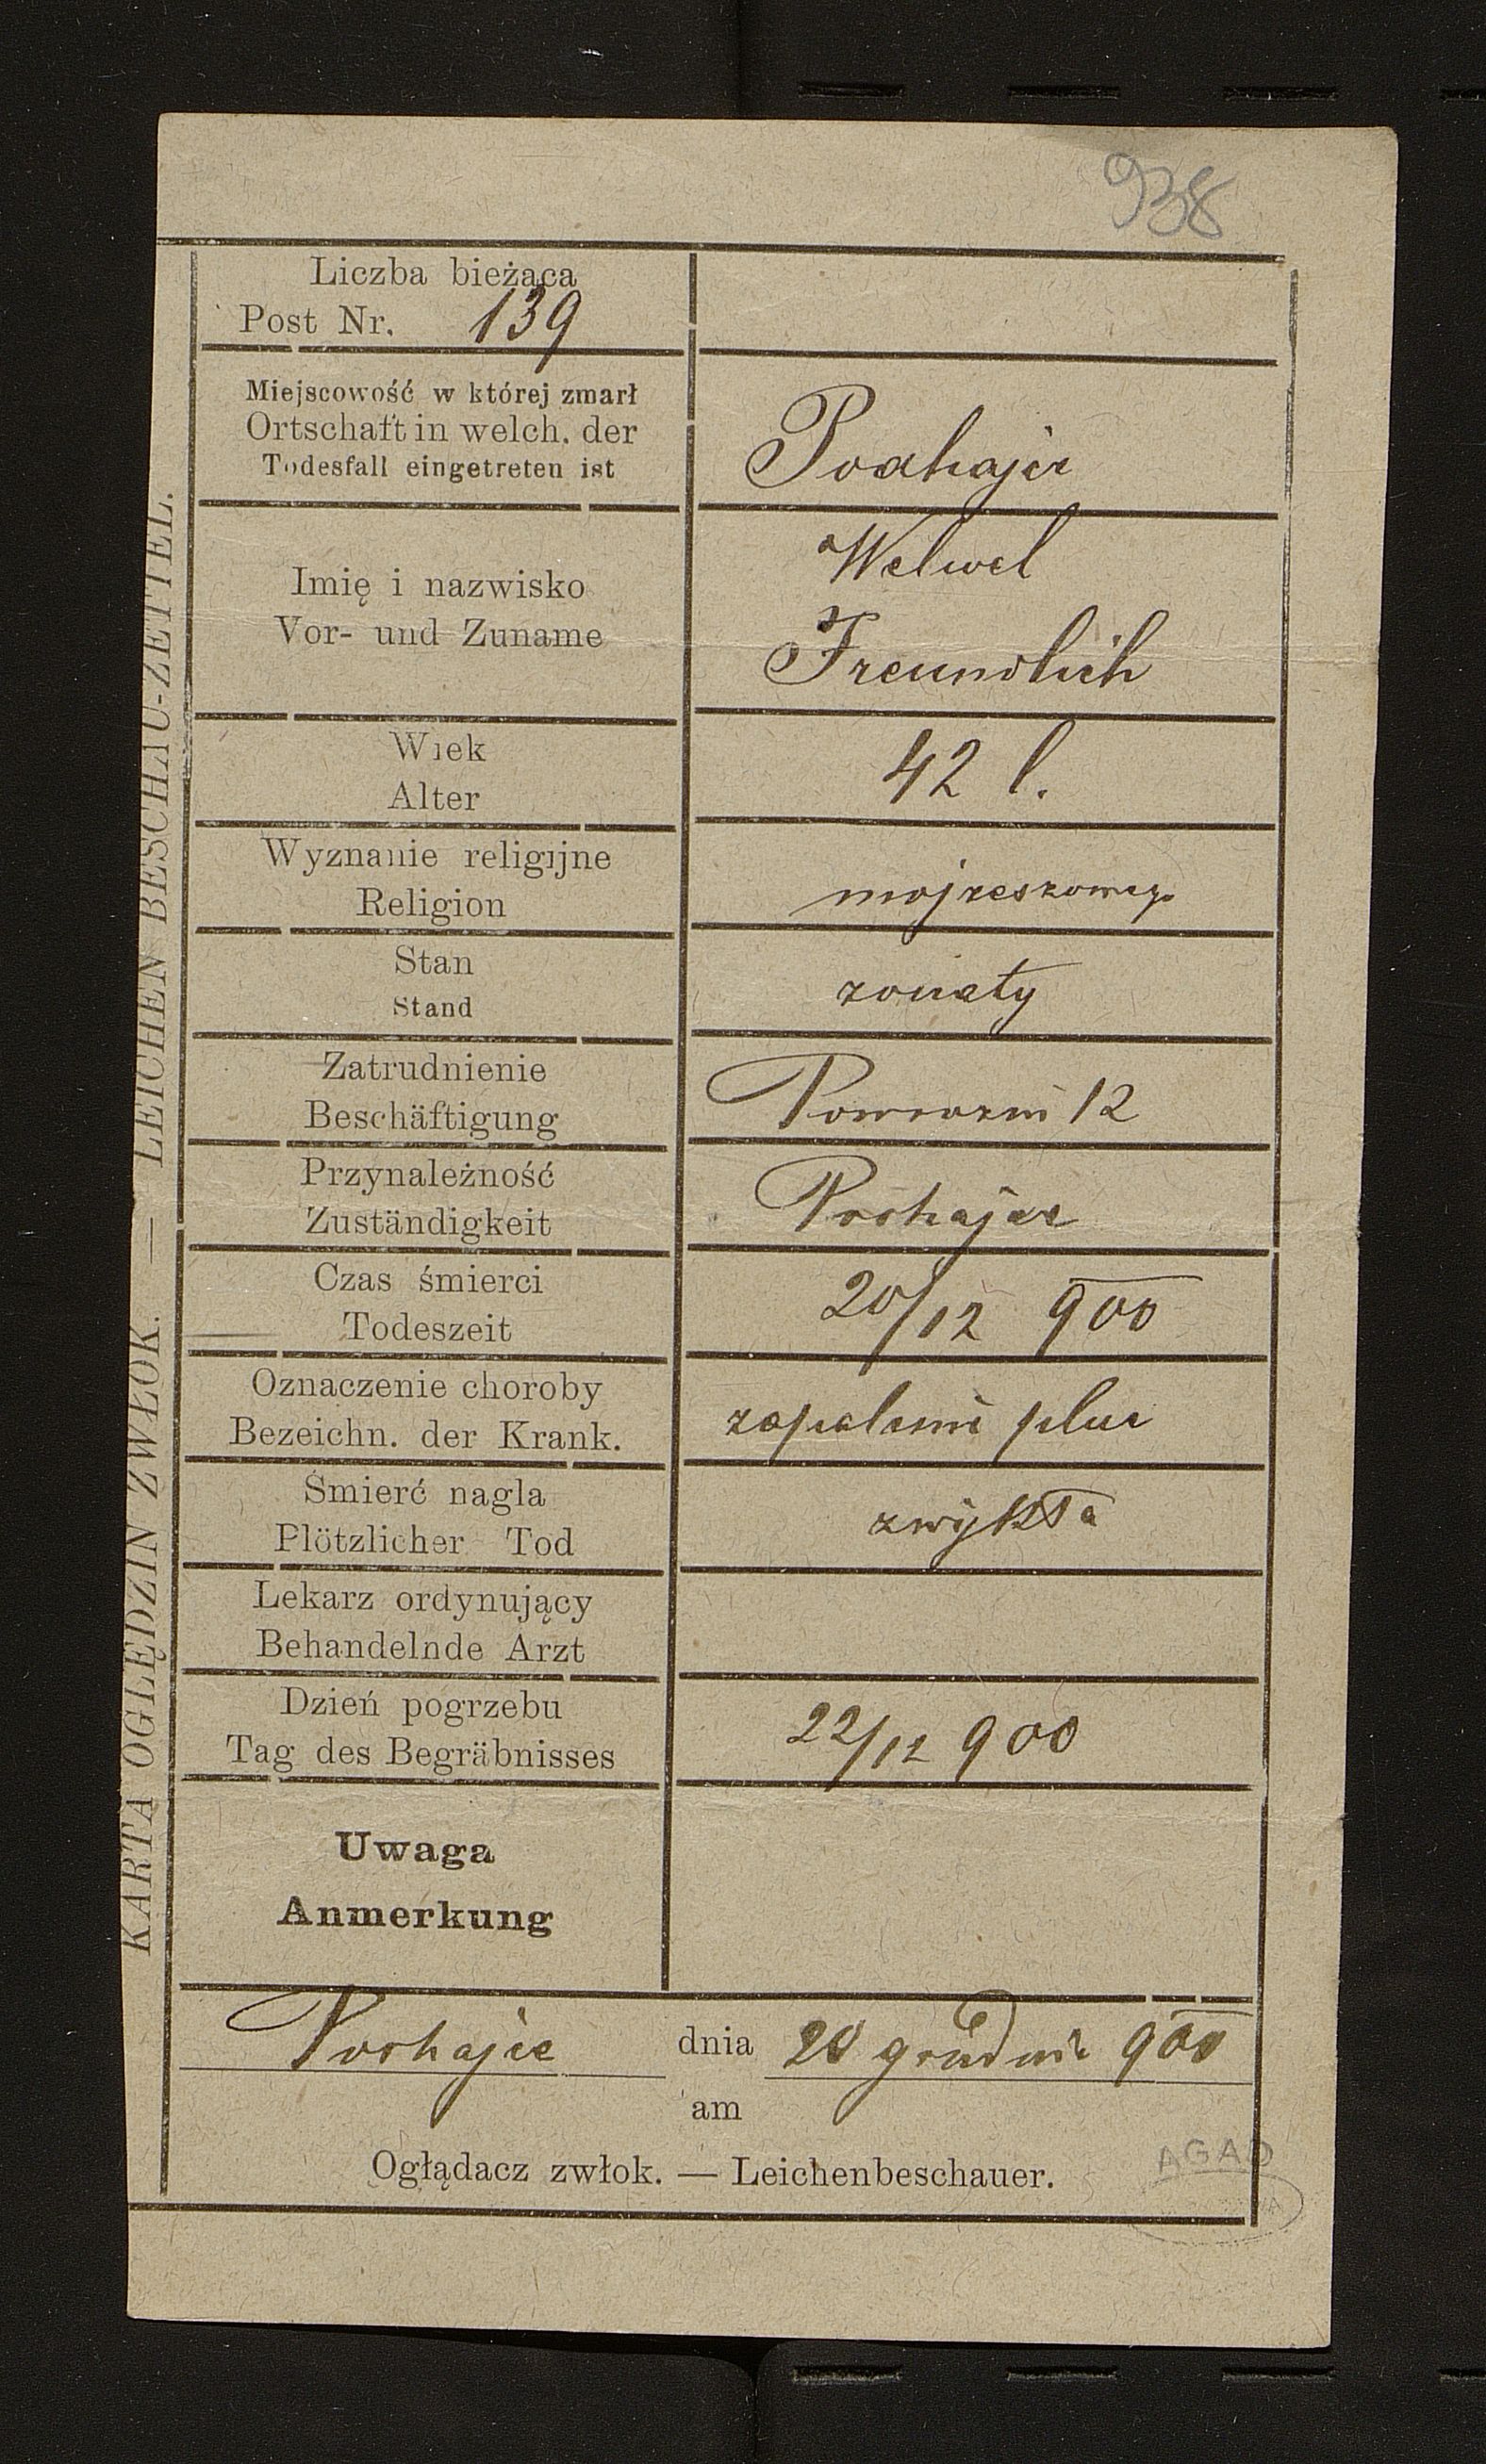 938
Liczba bieżąca
Post Nr. 139
Miejscowość w której zmarł
Ortschaft in welch. der
Todesfall eingetreten ist
Podhajce
Imię i nazwisko
Vor- und Zuname
Welwel
Freundlich
Wiek
Alter
42 l.
Wyznanie religijne
Religion
mojżeszowego
Stan
Stand
żonaty
Zatrudnienie
Beschäftigung
12
Przynależność
Zuständigkeit
Podhajce
Czas śmierci
Todeszeit
20/12 900
Oznaczenie choroby
Bezeichn. der Krank.
zapalenie pluc
Śmierć nagla
Plötzlicher Tod
zwykła
Lekarz ordynujący
Behandelnde Arzt
Dzień pogrzebu
Tag des Begräbnisses
22/12 900
Uwaga
Anmerkung
Podhajce dnia 20 grudnia 900
am
Oglądacz zwłok. — Leichenbeschauer.
KARTA OGLĘDZIN ZWŁOK. — LEICHEN BESCHAU-ZETTEL.
AGAD